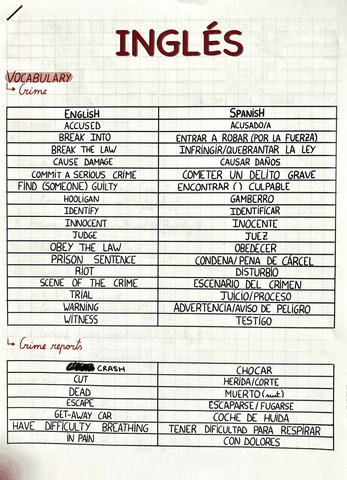 INGLÉS
VOCABULARY
↳ Crime
ENGLISH SPANISH
ACCUSED ACUSADO/A
BREAK INTO ENTRAR A ROBAR (POR LA FUERZA)
BREAK THE LAW INFRINGIR/QUEBRANTAR LA LEY
CAUSE DAMAGE CAUSAR DAÑOS
COMMIT A SERIOUS CRIME COMETER UN DELITO GRAVE
FIND (SOMEONE) GUILTY ENCONTRAR ( ) CULPABLE
HOOLIGAN GAMBERRO
IDENTIFY IDENTIFICAR
INNOCENT INOCENTE
JUDGE JUEZ
OBEY THE LAW OBEDECER
PRISON SENTENCE CONDENA/PENA DE CÁRCEL
RIOT DISTURBIO
SCENE OF THE CRIME ESCENARIO DEL CRIMEN
TRIAL JUICIO/PROCESO
WARNING ADVERTENCIA/AVISO DE PELIGRO
WITNESS TESTIGO
↳ Crime reports
CRASH CHOCAR
CUT HERIDA/CORTE
DEAD MUERTO (sust.)
ESCAPE ESCAPARSE/FUGARSE
GET-AWAY CAR COCHE DE HUIDA
HAVE DIFFICULTY BREATHING TENER DIFICULTAD PARA RESPIRAR
IN PAIN CON DOLORES